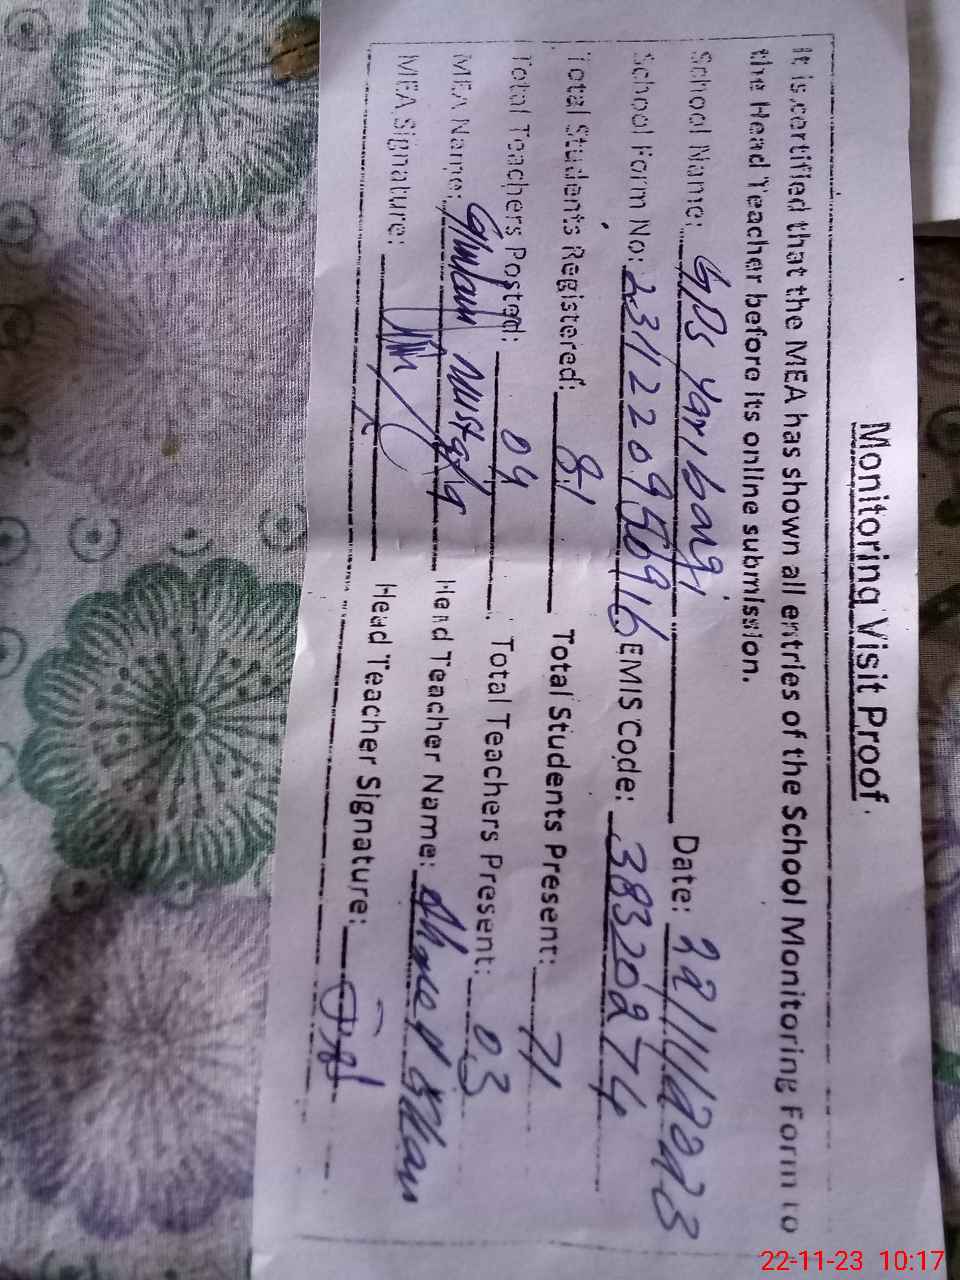 Monitoring Visit Proof
It is certified that the MEA has shown all entries of the School Monitoring Form to
the Head Teacher before its online submission.
School Name: GPS Date: 22/11/2023
School Form No: EMIS Code: 38320274
Total Students Registered: 81 Total Students Present: 71
Total Teachers Posted: 04 Total Teachers Present: 03
MEA Name: Ghulam Mustafa Head Teacher Name: Khan
MEA Signature: Head Teacher Signature:
22-11-23 10:17